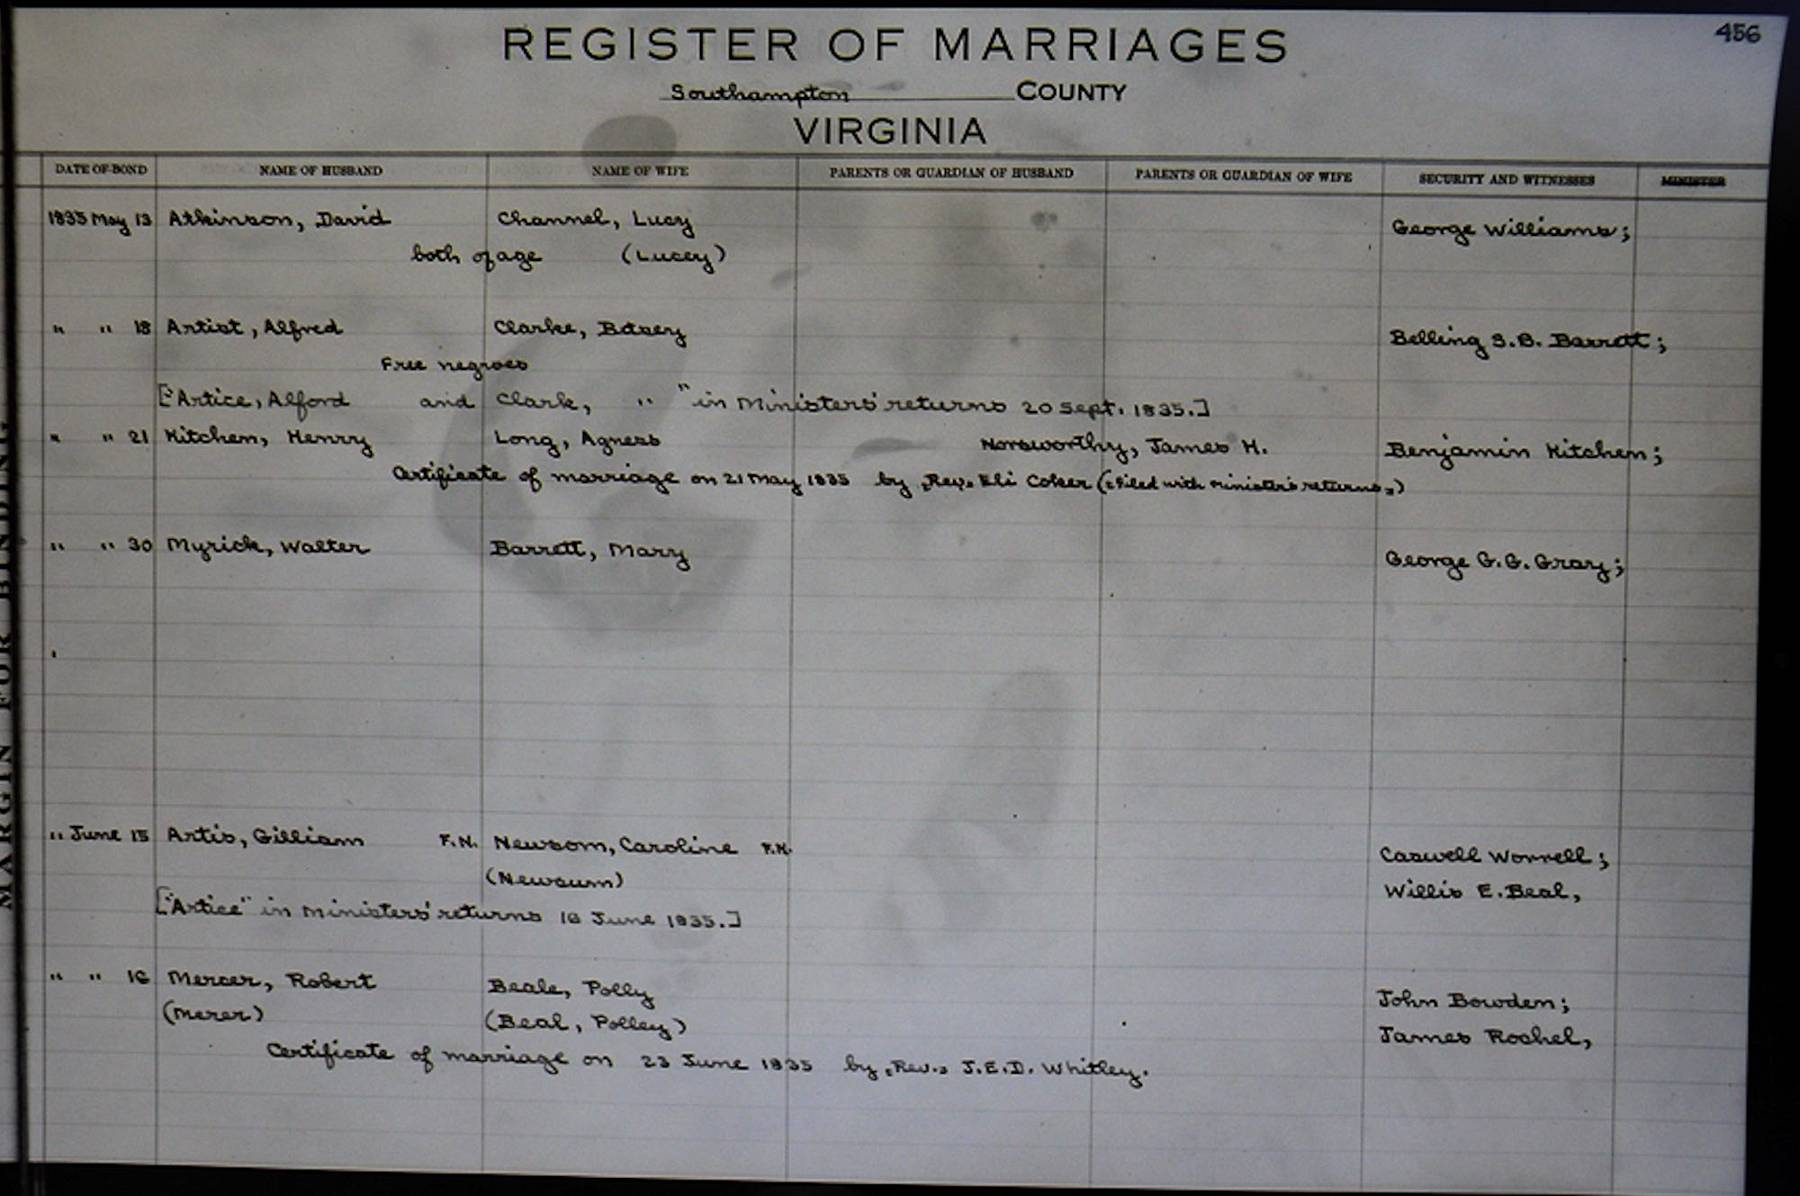 456
REGISTER OF MARRIAGES
Southampton COUNTY
VIRGINIA
DATE OF BOND NAME OF HUSBAND NAME OF WIFE PARENTS OR GUARDIAN OF HUSBAND PARENTS OR GUARDIAN OF WIFE SECURITY AND WITNESSES MINISTER
1835 May 13 Atkinson, David Channel, Lucy George Williams;
both of age (Lucey)
" " 18 Artist, Alfred Clarke, Belling S.B. Barrett;
Free negroes
["Artice, Alford and Clark, " " in Ministers' returns 20 Sept. 1835.]
" " 21 Kitchen, Henry Long, Agness Norsworthy, James H. Benjamin Kitchen;
Certificate of marriage on 21 May 1835 by [Rev.] Eli Coker (filed with minister's returns.)
" " 30 Myrick, Walter Barrett, Mary George G.G. Gray;
" June 15 Artis, Gilliam F.N. Newsom, Caroline F.N. Caswell Worrell;
(Newsum) Willis E. Beal,
["Artice" in Ministers' returns 16 June 1835.]
" " 16 Mercer, Robert Beale, Polly John Bowden;
(Merer) (Beal, Polley) James Rochel,
Certificate of marriage on 23 June 1835 by [Rev.] J.E.D. Whitley.
MARGIN FOR BINDING